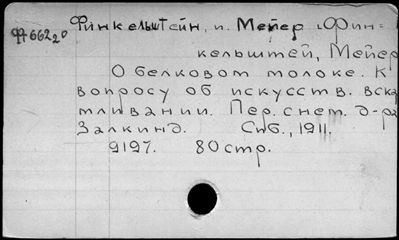 Ф 66220
Финкельштейн, и. Мейер (Фин=
кельштей, Мейер
О белковом молоке. К
вопросу об искусств. вска
мливании. Пер. с нет. д-ра
Залкинд. Спб., 1911.
9197. 80 стр.